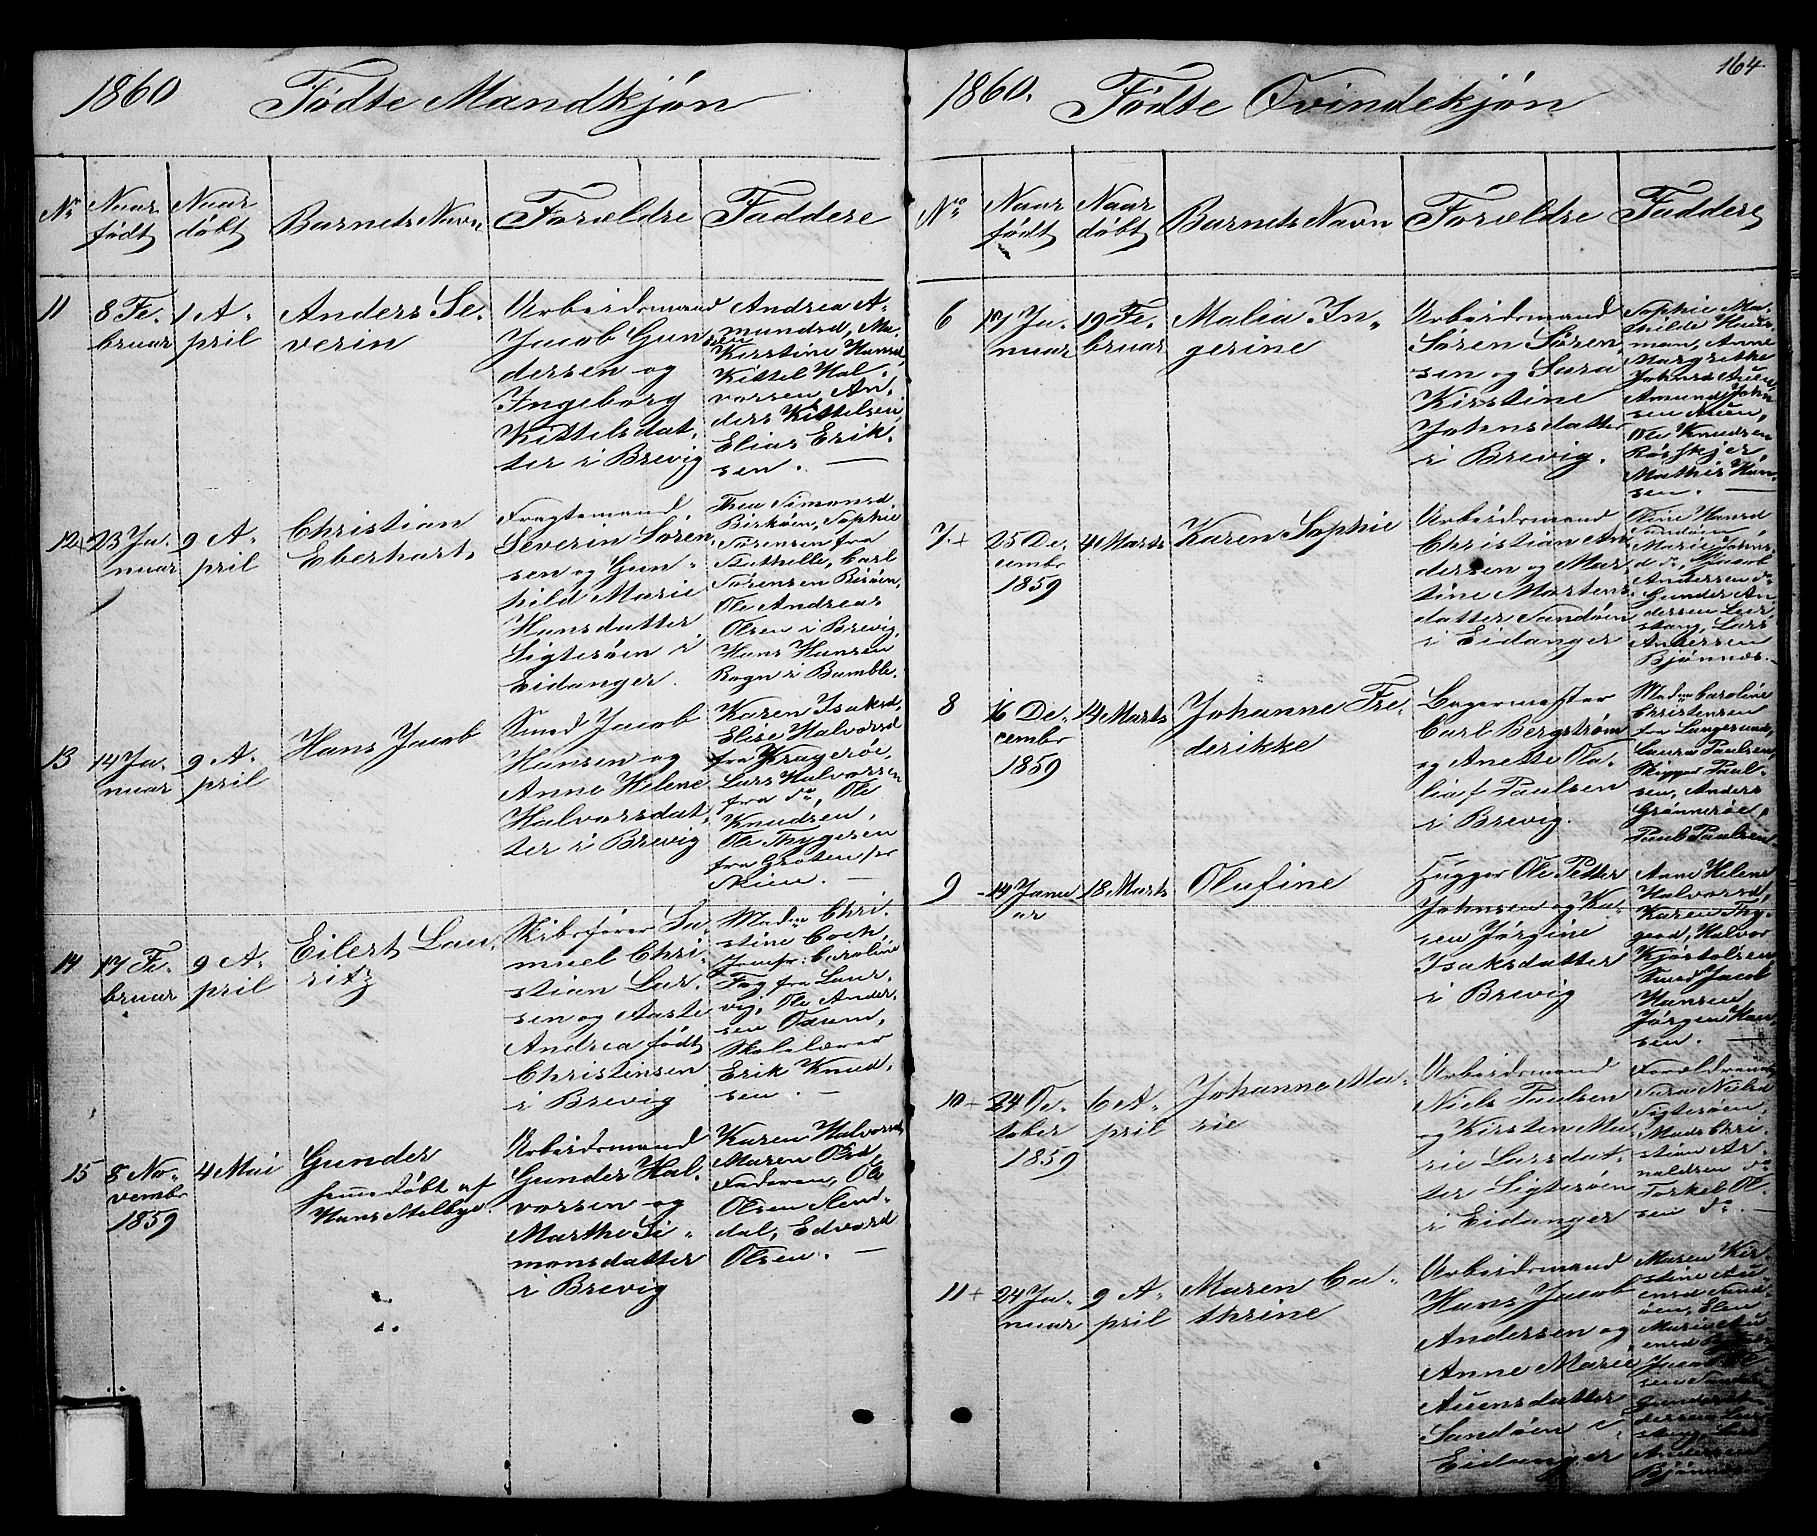 1860 Fødte Mandkjøn
No
Naar
født
Naar
døbt
Barnets Navn
Forældre
Faddere
11
8 Fe-
bruar
1 A-
pril
Anders Se-
verin
Arbeidsmand
Jacob Gun-
dersen og
Ingeborg
Kittelsdat-
ter i Brevig
Andrea A-
mundsd, Ma-
ren
Kirstine Hansd,
Kittel Hal-
vorsen, An-
ders Kittelsen,
Elias Erik-
sen. —
12 +
23 Ja-
nuar
9 A-
pril
Christian
Eberhart
Fragtemand
Severin Søren-
sen og Gun-
hild Marie
Hansdatter
Sigtesøen i
Eidanger.
Thea Simonsd
Birkøen, Sophie
Sørensen fra
Stathelle, Carl
Sørensen Birøen,
Ole Andreas
Olsen i Brevig,
Hans Hansen
Rogn i Bamble.
13
14 Ja-
nuar
9 A-
pril
Hans Jacob
Smed Jacob
Hansen og
Anne Helene
Halvorsdat-
ter i Brevig
Karen Isaksd,
Elise Halvorsd
fra Kragerøe,
Lars Halvorsen
fra do, Ole
Knudsen,
Ole Thygesen
fra Groten pr
Skien. —
14
17 Fe-
bruar
9 A-
pril
Eilert Lau-
ritz
Skibsfører Sa-
muel Chri-
stian Lar-
sen og Aaste
Andrea født
Christensen
i Brevig
Madm Chri-
stine Cock,
Jomfr: Caroline
Fog fra Laur-
vig, Ole Ander-
sen Ozum,
Skolelærer
Erik Knud-
sen. —
15
8 No-
vembr
1859
4 Mai
Gunder
hjemmedøbt af
Hans Melbye.
Arbeidsmand
Gunder Hal-
vorsen og
Marthe Si-
monsdatter
i Brevig
Karen Halvorsd,
Maren Olsd,
Faderen, Ole
Olsen Stend-
dal, Edvard
Olsen. —
164
1860. Fødte Qvindekjøn
No
Naar
født
Naar
døbt
Barnets Navn
Forældre
Faddere
6
17 Ja-
nuar
19 Fe-
bruar
Malea In-
gerine
Arbeidsmand
Søren Søren-
sen og Sara
Kirstine
Johnsdatter
i Brevig.
Sophie Ma-
thilde Huus-
man, Anne
Margrethe
Johnsd Auen,
Amund John-
sen Auen,
Ole Knudsen
Rørskjer,
Mathis Han-
sen. —
7 +
25 De-
cembr
1859
4 Marts
Karen Sophie
Arbeidsmand
Christian An-
dersen og Mar-
tine Martens-
datter Sandøen
i Eidanger
Oline Hansd
Sandøen,
Marie Johns-
d do, Jacob
Andersen do
Gunder An-
dersen Leer-
stang, Lars
Andersen
Bjønnes. —
8
16 De-
cembr
1859
14 Marts
Johanne Fre-
derikke
Bagermester
Carl Bergstrøm
og Anette Ola-
lia f Paulsen
i Brevig.
Madm Caroline
Christensen
fra Langesund,
Laura Paulsen,
Skipper Paul-
sen, Anders
Grønnerøe,
Paul Paulsen
9
14 Janu-
ar
18 Marts
Olufine
Hugger Ole Petter
Johnsen og Ka-
ren Jørgine
Isaksdatter
i Brevig
Anne Helene
Halvorsd,
Karen Thy-
gesd, Halvor
Kjøstolsen,
Smed Jacob
Hansen,
Jørgen Han-
sen. —
10 +
24 Oc-
tober
1859
6 A-
pril
Johanne Ma-
rie
Arbeidsmand
Niels Paulsen
og Kirsten Ma-
rie Larsdat-
ter Sigtesøen
i Eidanger
Forældrene,
Sara Nielsd
Sigtesøen,
Mads Chri-
stian Ar-
naldsen do
Torkel Ol-
sen do. —
11 +
24 Ja-
nuar
9 A-
pril
Maren Ca-
thrine
Arbeidsmand
Hans Jacob
Andersen og
Anne Marie
Auensdatter
Sandøen i
Eidanger
Maren Kir-
stine Au-
ensd Sand-
øen, Elen
Marie Au-
ensd
Jacob Ol-
sen
Gunder An-
dersen Leer-
stang, Lars
Andersen
Bjønnes